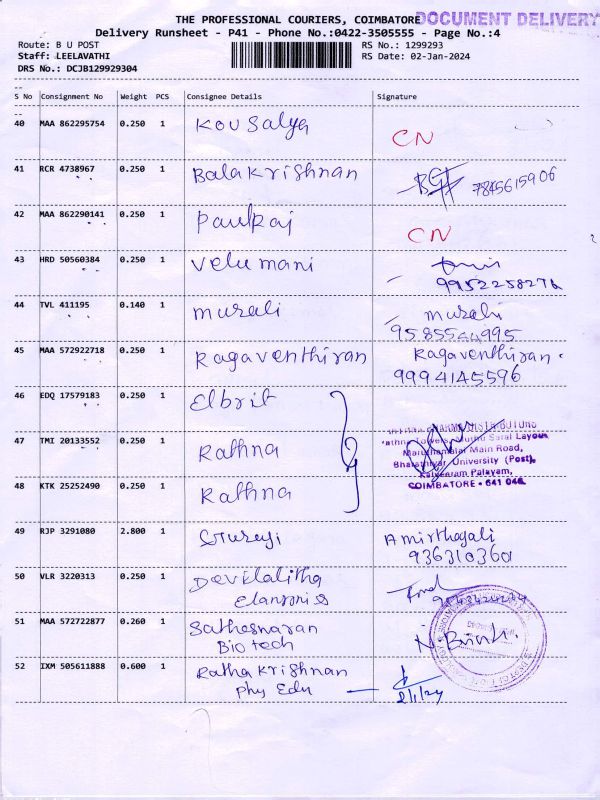 THE PROFESSIONAL COURIERS, COIMBATORE DOCUMENT DELIVERY
Delivery Runsheet - P41 - Phone No.:0422-3505555 - Page No.:4
Route: B U POST RS No.: 1299293
Staff: LEELAVATHI RS Date: 02-Jan-2024
DRS No.: DCJB129929304
S No Consignment No Weight PCS Consignee Details Signature
40 MAA 862295754 0.250 1 Kousalya CN
41 RCR 4738967 0.250 1 Balakrishnan 7845615906
42 MAA 862290141 0.250 1 Paulraj CN
43 HRD 50560384 0.250 1 Velumani
9952258276
44 TVL 411195 0.140 1 murali murali
9585544995
45 MAA 572922718 0.250 1 Ragaventhiran Ragaventhiran.
9994145596
46 EDQ 17579183 0.250 1 Elbrit
47 TMI 20133552 0.250 1 Rathna
Maruthamalai Main Road,
Bharathiyar University (Post),
Palayam,
48 KTK 25252490 0.250 1 Rathna COIMBATORE - 641 046.
49 RJP 3291080 2.800 1 Amirthagali
936310360
50 VLR 3220313 0.250 1 Devilalitha
51 MAA 572722877 0.260 1
Bio tech
52 IXM 505611888 0.600 1 Ratha Krishnan
Phy Edu 2/1/24